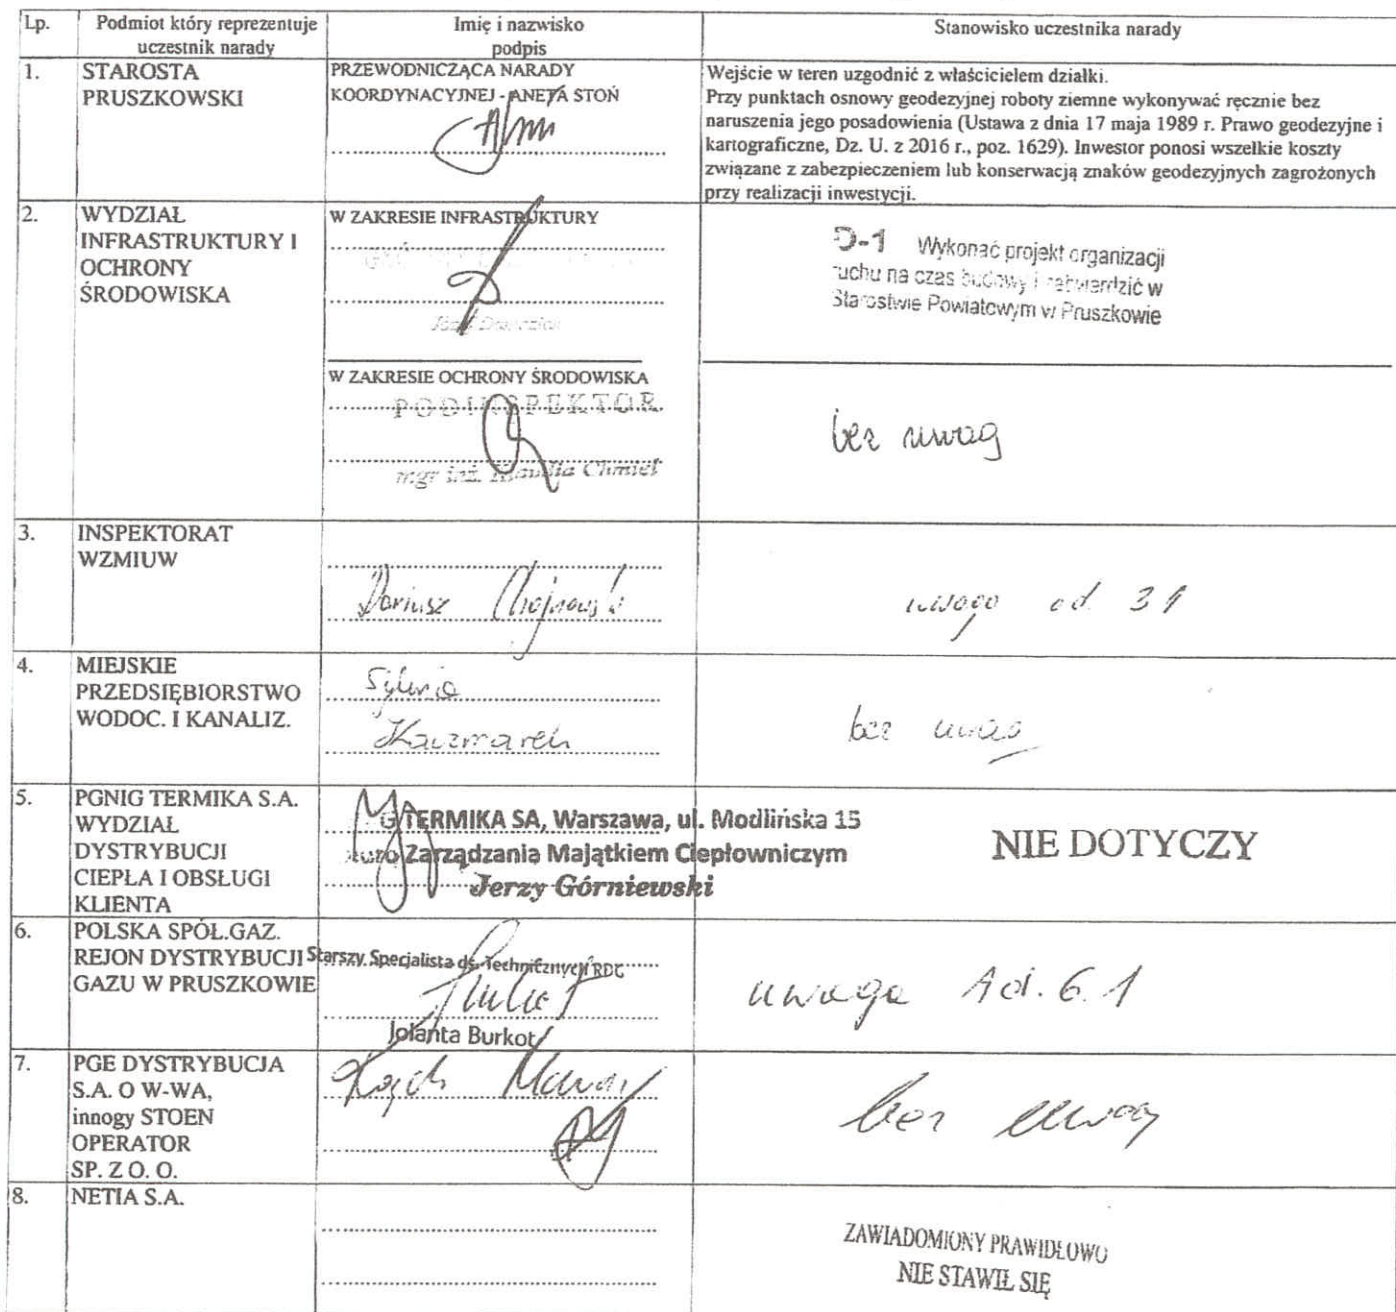 Lp.
Podmiot który reprezentuje
uczestnik narady
Imię i nazwisko
podpis
Stanowisko uczestnika narady
1.
STAROSTA
PRUSZKOWSKI
PRZEWODNICZĄCA NARADY
KOORDYNACYJNEJ - ANETA STOŃ
Wejście w teren uzgodnić z właścicielem działki.
Przy punktach osnowy geodezyjnej roboty ziemne wykonywać ręcznie bez
naruszenia jego posadowienia (Ustawa z dnia 17 maja 1989 r. Prawo geodezyjne i
kartograficzne, Dz. U. z 2016 r., poz. 1629). Inwestor ponosi wszelkie koszty
związane z zabezpieczeniem lub konserwacją znaków geodezyjnych zagrożonych
przy realizacji inwestycji.
2.
WYDZIAŁ
INFRASTRUKTURY I
OCHRONY
ŚRODOWISKA
W ZAKRESIE INFRASTRUKTURY
D-1 Wykonać projekt organizacji
ruchu na czas budowy i zatwierdzić w
Starostwie Powiatowym w Pruszkowie
W ZAKRESIE OCHRONY ŚRODOWISKA
PODINSPEKTOR
mgr inż. Klaudia Chmiel
bez uwag
3.
INSPEKTORAT
WZMIUW
Dariusz Chojnowski
uwaga ad. 31
4.
MIEJSKIE
PRZEDSIĘBIORSTWO
WODOC. I KANALIZ.
Sylwia
Kaczmarek
bez uwag
5.
PGNIG TERMIKA S.A.
WYDZIAŁ
DYSTRYBUCJI
CIEPŁA I OBSŁUGI
KLIENTA
TERMIKA SA, Warszawa, ul. Modlińska 15
Biuro Zarządzania Majątkiem Ciepłowniczym
Jerzy Górniewski
NIE DOTYCZY
6.
POLSKA SPÓŁ.GAZ.
REJON DYSTRYBUCJI
GAZU W PRUSZKOWIE
Starszy Specjalista ds. Technicznych RDG
Jolanta Burkot
uwaga Ad. 6.1
7.
PGE DYSTRYBUCJA
S.A. O W-WA,
innogy STOEN
OPERATOR
SP. Z O. O.
bez uwag
8.
NETIA S.A.
ZAWIADOMIONY PRAWIDŁOWO
NIE STAWIŁ SIĘ